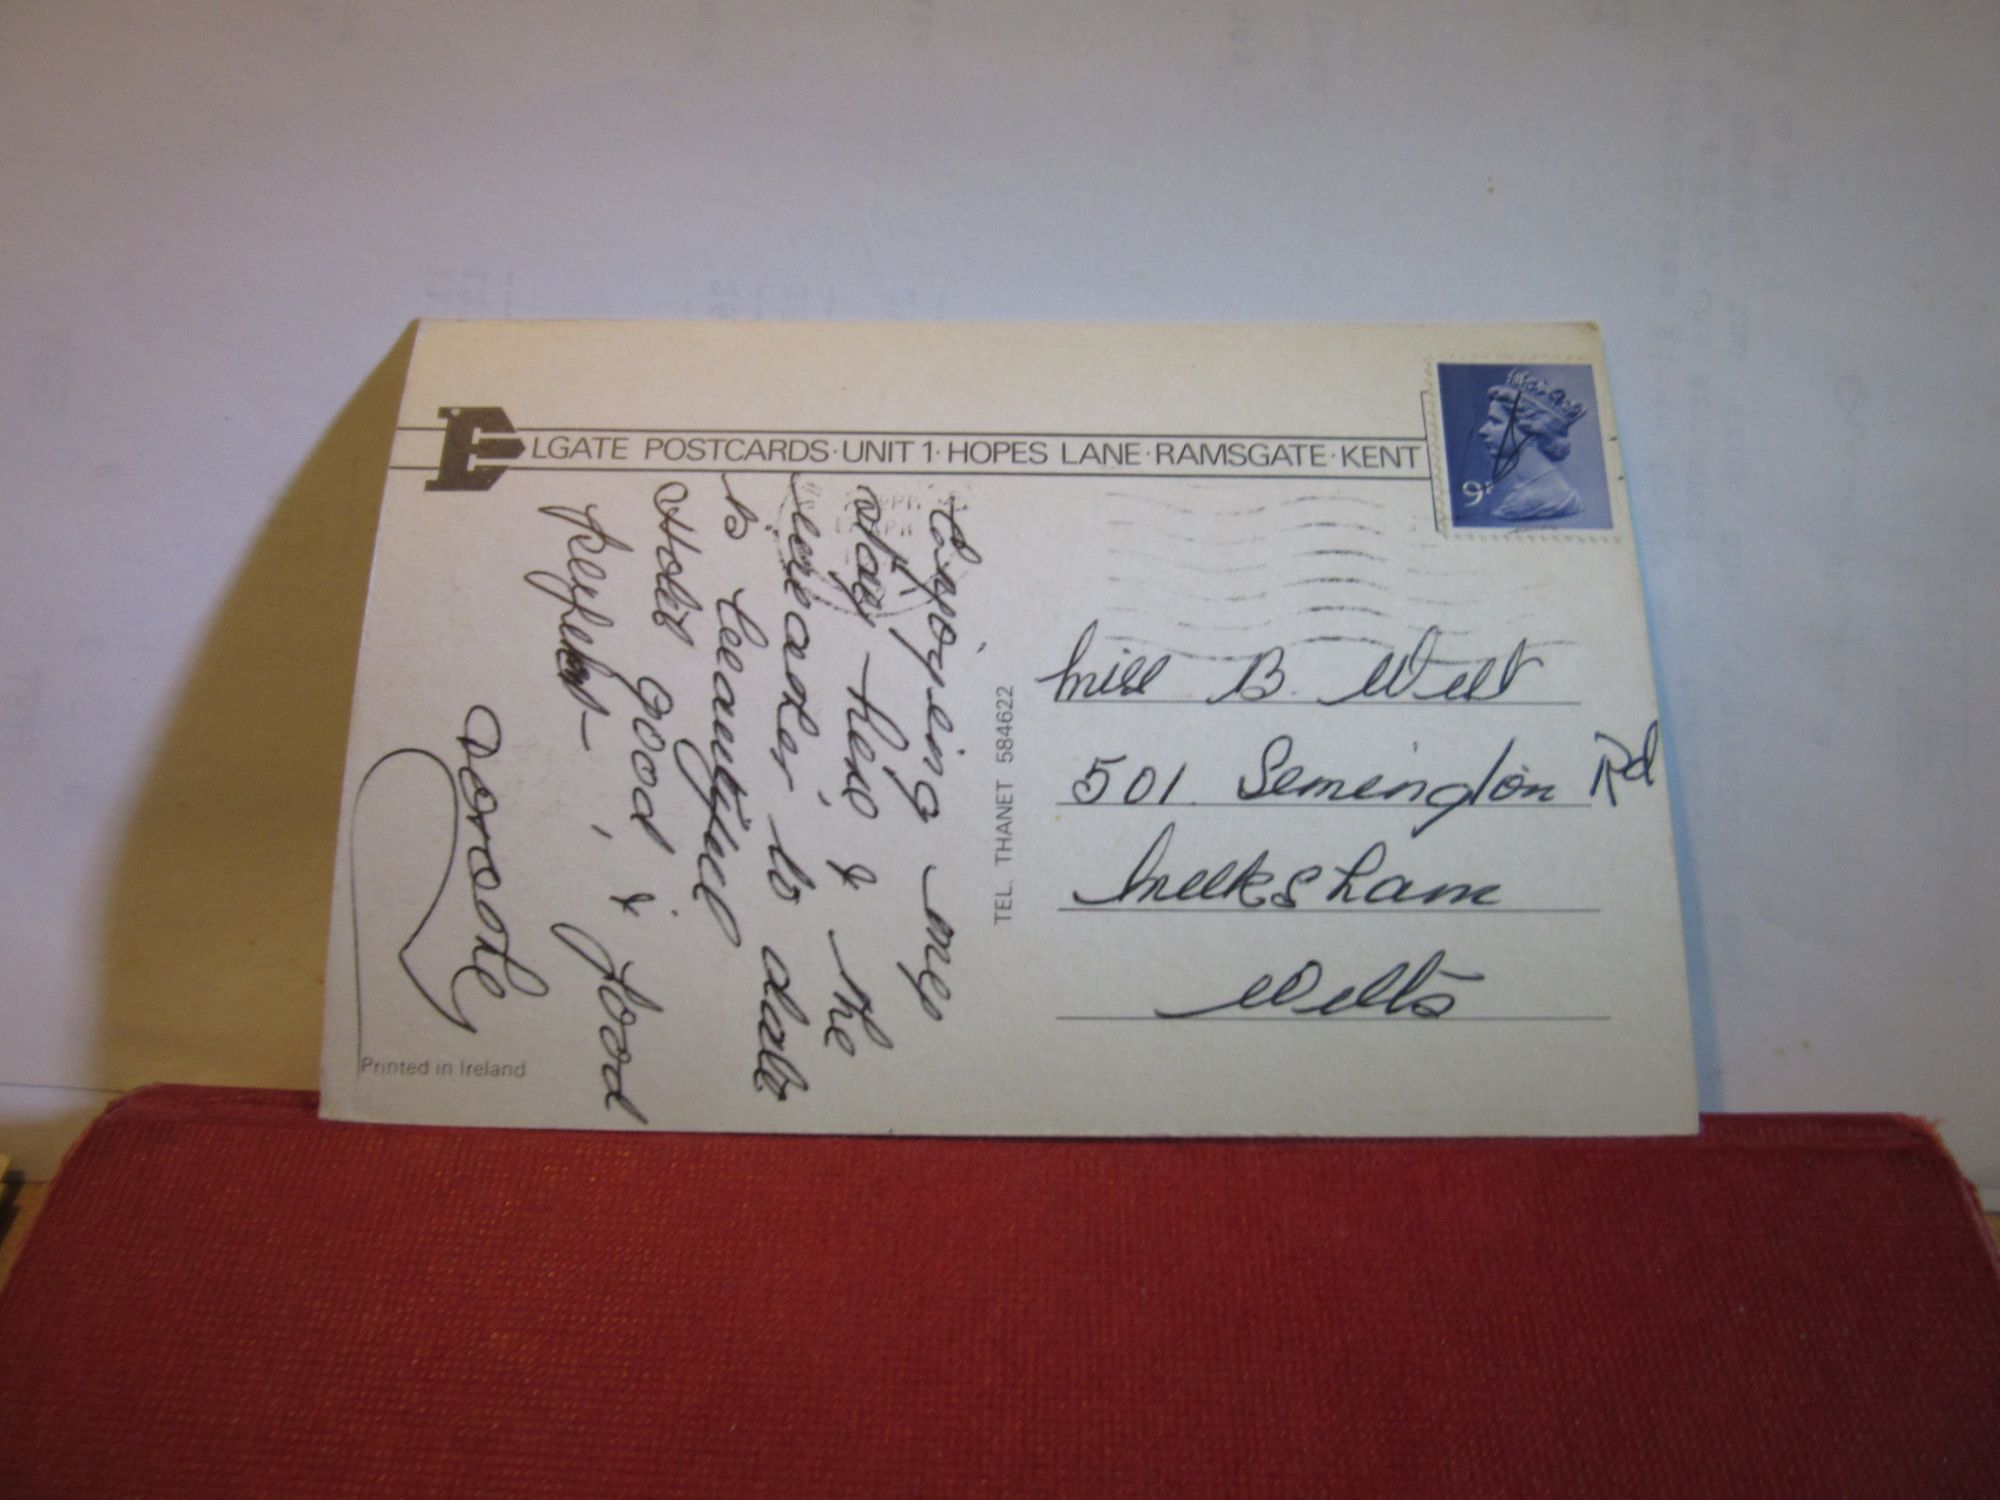 ELGATE POSTCARDS·UNIT 1·HOPES LANE·RAMSGATE·KENT
9P
Enjoying my
stay here & the
weather, to date
is beautiful
Hotel good, & food
perfect—
Dorothy
TEL. THANET 584622
Miss B. West
501 Semington Rd
Melksham
Wilts
Printed in Ireland